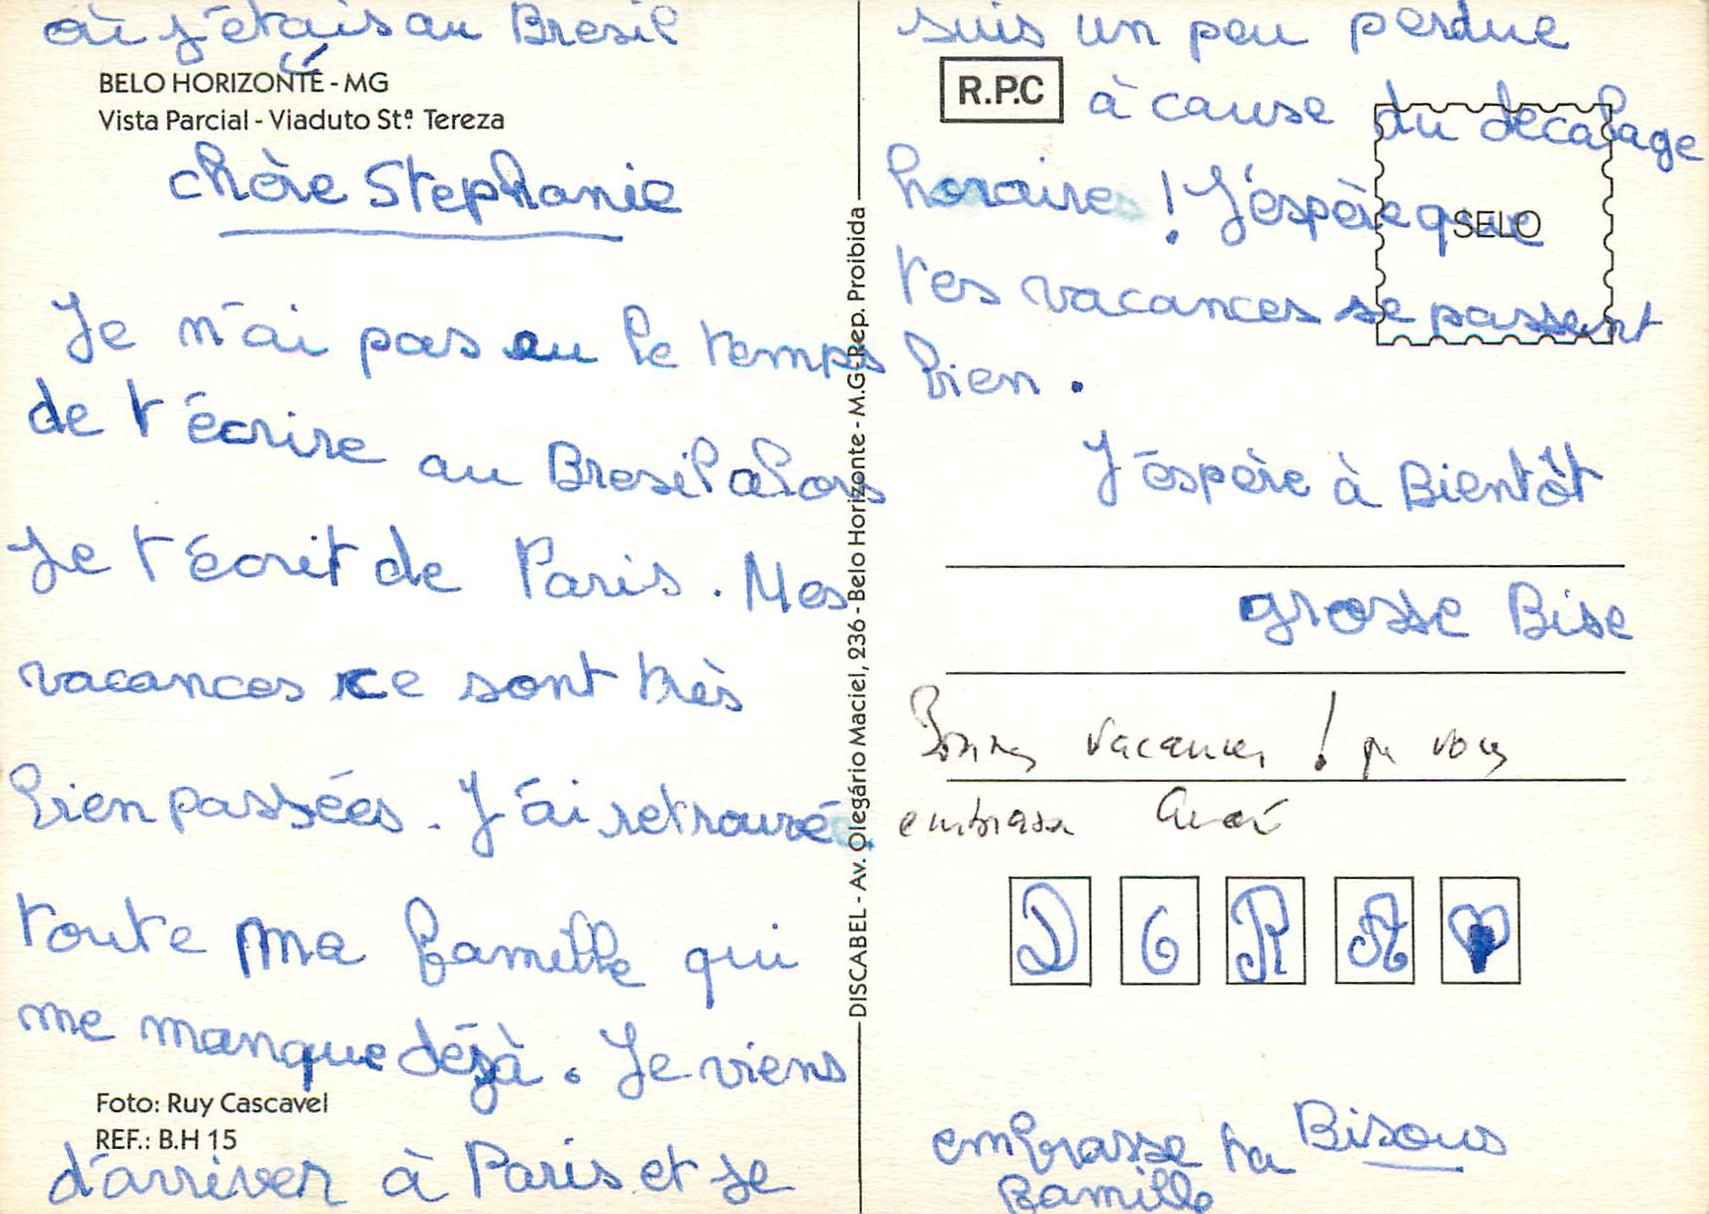 où j'étais au Bresil
BELO HORIZONTE - MG
Vista Parcial - Viaduto Stª. Tereza
chère Stephanie
Je n'ai pas eu le temps
de t'écrire au Bresil alors
Je t'écrit de Paris. Mes
vacances ce sont très
bien passées. J'ai retrouvé
toute ma famille qui
me manque déjà. Je viens
Foto: Ruy Cascavel
REF.: B.H 15
d'arriver à Paris et je
DISCABEL - Av. Olegário Maciel, 236 - Belo Horizonte - M.G. Rep. Proibida
suis un peu perdue
R.P.C
à cause du decalage
horaire ! J'éspère que
SELO
tes vacances se passent
bien.
J'éspère à Bientôt
grosse Bise
Bonnes vacances !
vous
embrasse
D G R A
embrasse ta Bisous
famille